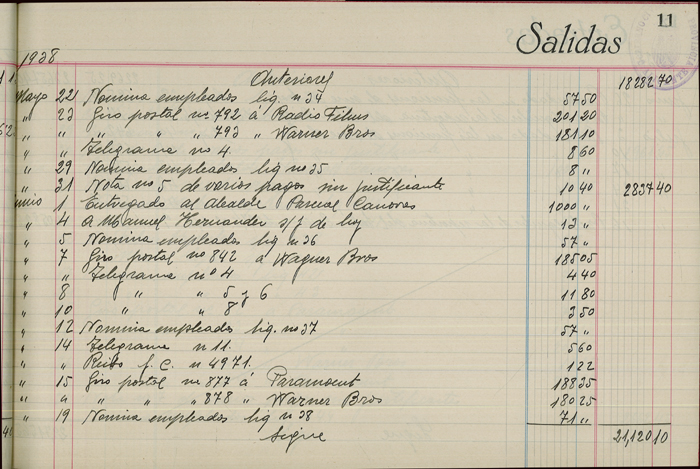 11
Salidas
1938
Anteriores 18282 70
Mayo 22 Nomina empleados liq. nº 34 57 50
" 23 Giro postal nº 792 á Radio Films 201 20
" " " " " 793 " Warner Bros 181 10
" " Telegrama nº 4 8 60
" 29 Nomina empleados liq nº 35 8 "
" 31 Nota nº 5 de varios pagos sin justificante 10 40 2837 40
1 Entregado al Alcalde Pascual Canovas 1000 "
" 4 A Manuel Hernandez s/j de hoy 12 "
" 5 Nomina empleados liq nº 36 57 "
" 7 Giro postal nº 842 á Wagner Bros 185 05
" " Telegrama nº 4 4 40
" 8 " " 5 y 6 11 80
" 10 " " 8 3 50
" 12 Nomina empleados liq. nº 37 57 "
" 14 Telegrama n 11. 5 60
" " Recibo f. C. n 4971. 1 22
" 15 Giro postal nº 877 á Paramount 188 35
" " " " " 878 " Warner Bros 180 25
" 19 Nomina empleados liq n 38 71 "
Sigue 21,120 10